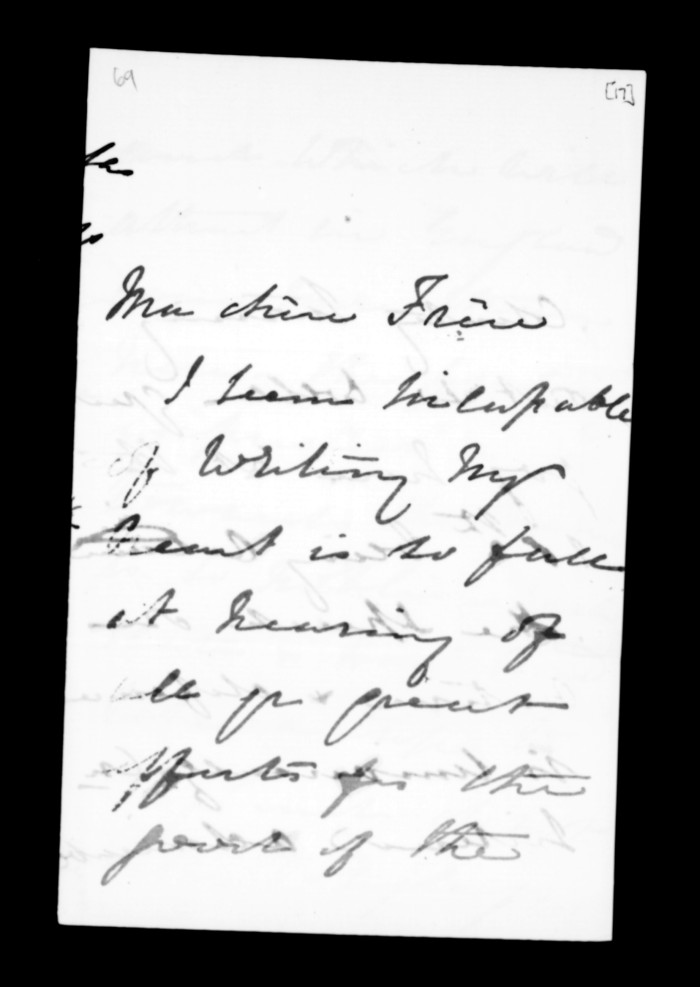 69
[17]
Ma chère Frère
I seem incapable
of writing my
heart is so full
at hearing of
all yr great
efforts for the
good of the